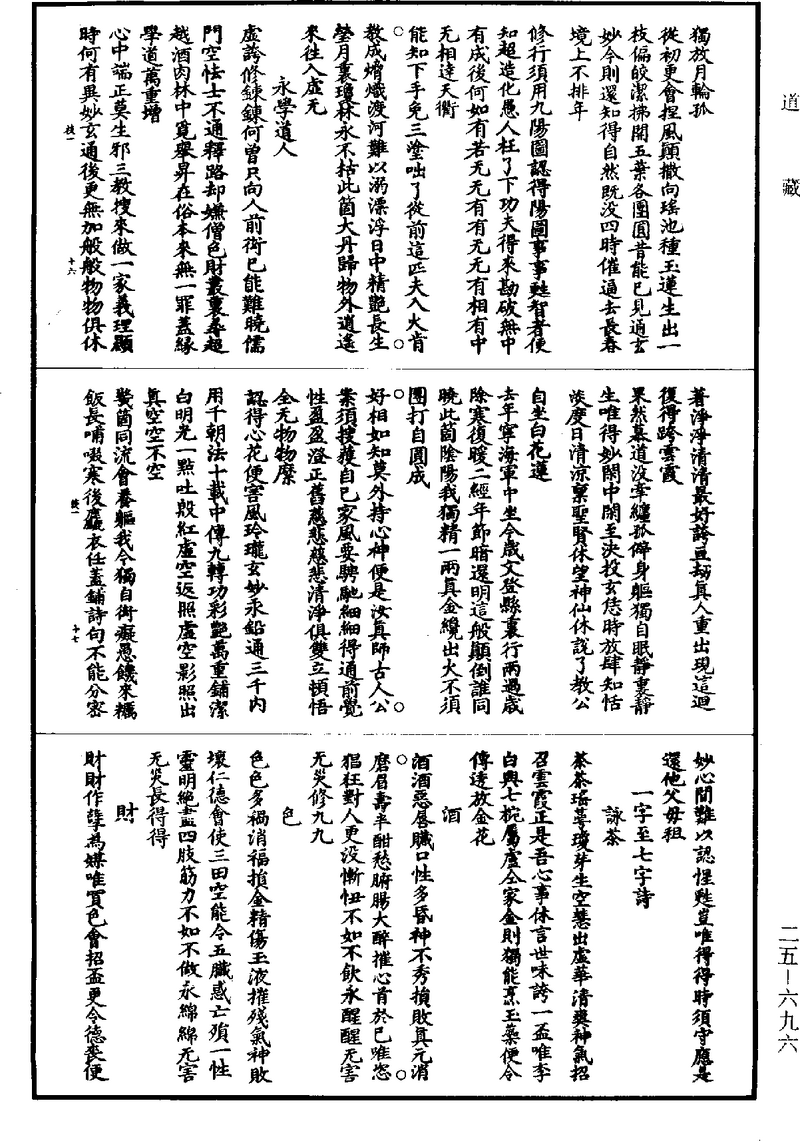 道藏
獨放月輪孤
從初更會捏風顛撒向瑤池種玉蓮生出一
枝偏皎潔拂開五葉各團圓昔能已見通玄
妙今則還知得自然既没四時催逼去長春
境上不排年
修行須用九陽圖認得陽圖事事甦智者便
知超造化愚人枉了下功夫得來勘破無中
有成後何如有若无无有有无无有相有中
无相達天衢
能知下手免三塗咄了從前這匹夫入火肯
教成㷟熾渡河難以溺漂浮日中精艷長生
瑩月裏瓊林永不枯此箇大丹歸物外逍遙
來往入虛无
永學道人
虛誇修鍊鍊何曾只向人前衒已能難曉儒
門空怯士不通釋路却嫌僧色財叢裏尋超
越酒肉林中覓舉昇在俗本來無一罪蓋緣
學道萬重增
心中端正莫生邪三教搜來做一家義理顯
時何有異妙玄通後更無加般般物物俱休
著淨淨清清最好誇亘劫真人重出現這迴
復得跨雲霞
果然慕道没牽纏孤僻身軀獨自眠靜裏靜
生唯得妙閑中閑至決投玄恁時放肆知恬
淡度日清涼稟聖賢休望神仙休說了教公
自坐白花蓮
去年寧海軍中坐今歲文登縣裏行兩過歲
除寒復暖二經年節暗還明這般顛倒誰同
曉此箇陰陽我獨精一兩真金纔出火不須
團打自圓成
好相如知莫外持心神便是汝真師古人公
案須搜獲自已家風要騁馳細細得通前覺
性盈盈澄正舊慈悲慈悲清淨俱雙立頓悟
全无物物縻
認得心花便害風玲瓏玄妙永鉛通三千內
用千朝法十載中傳九轉功彩艷萬重鋪潔
白明光一點吐殷紅虛空返照虛空影照出
真空空不空
螢箇同流會養軀我今獨自衒癡愚饑來糲
飯長哺啜寒後麤衣任蓋鋪詩句不能分密
妙心間難以認惺甦豈唯得得時須守應是
還他父母祖
一字至七字詩
詠茶
茶茶瑤萼瓊芽生空慧出虛華清爽神氣招
召雲霞正是吾心事休言世味誇一盃唯李
白興七椀屬盧仝家金則獨能烹玉蘂便令
傳透放金花
酒
酒酒惡唇贓口性多昏神不秀損敗真元消
磨眉壽半酣愁腑腸大醉摧心首於已唯恣
猖狂對人更没慚忸不如不飲永醒醒无害
无災修九九
色
色色多禍消福損金精傷玉液摧殘氣神敗
壞仁德會使三田空能令五臟惑亡殞一性
靈明絕盡四肢筋力不如不做永綿綿无害
无災長得得
財
財財作孽為媒唯買色會招盃更令德喪便
二五—六九六